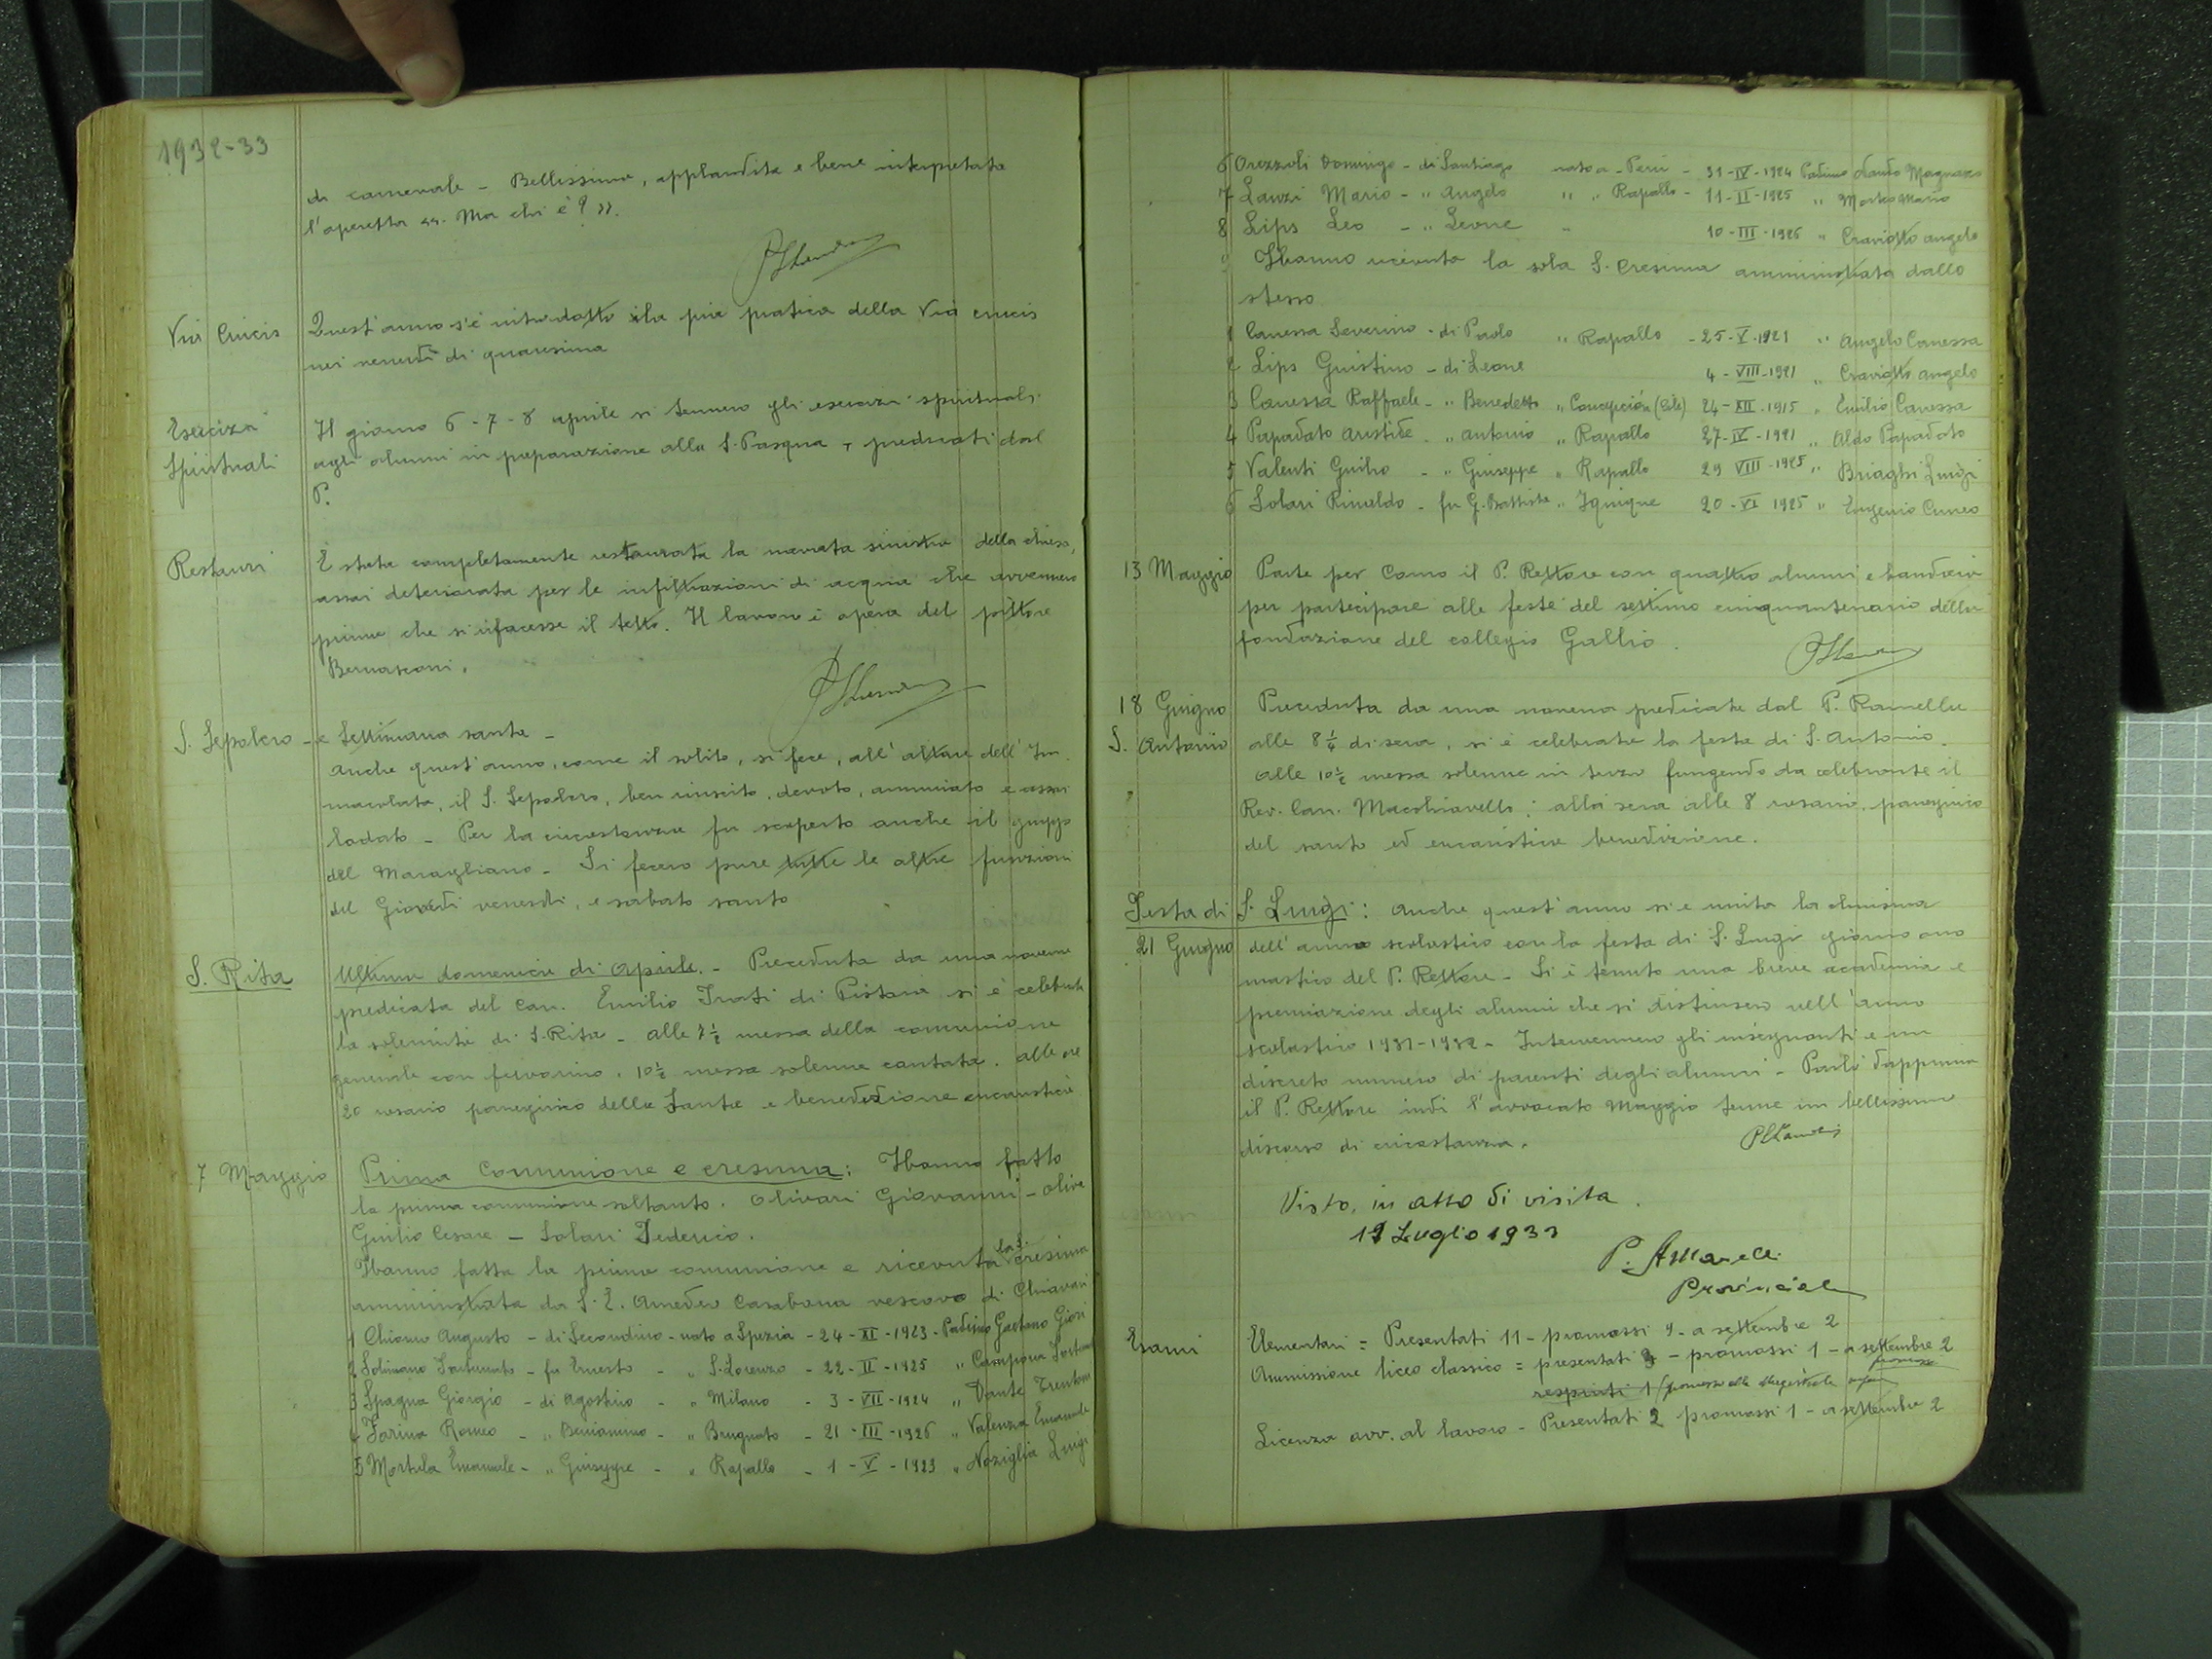 1932-33
di carnevale - Bellissima, applaudita e bene interpretata
l'operetta «. Ma chi è? ».
Via Crucis
Quest'anno s'è introdotto la pia pratica della Via crucis
nei venerdì di quaresima
Esercizi
Spirituali
Il giorno 6-7-8 aprile si tennero gli esercizi spirituali
agli alunni in preparazione alla S. Pasqua, predicati dal
P.
Restauri
È stata completamente restaurata la navata sinistra della chiesa,
assai deteriorata per le infiltrazioni di acqua che avvennero
prima che si rifacesse il tetto. Il lavoro è opera del pittore
Bernasconi.
S. Sepolcro - e Settimana santa -
Anche quest'anno, come il solito, si fece, all'altare dell'Im
macolata, il S. Sepolcro, ben riuscito, devoto, ammirato e assai
lodato - Per la circostanza fu scoperto anche il gruppo
del Maragliano - Si fecero pure tutte le altre funzioni
del Giovedì venerdì, e sabato santo
S. Rita
Ultima domenica di Aprile. - Preceduta da una novena
predicata del Can. Emilio Frati di Pistoia si è celebrata
la solennità di S. Rita - alle 7½ messa della comunione
generale con fervorino, 10½ messa solenne cantata. alle ore
20 rosario panegirico della Santa e benedizione eucaristica
7 Maggio
Prima Comunione e cresima: Hanno fatto
la prima comunione soltanto. Olivari Giovanni - Oliva
Giulio Cesare - Solari Federico.
Hanno fatta la prima comunione e ricevuta la S. cresima
amministrata da S. E. Amedeo Casabona vescovo di Chiavari
1 Chiono Augusto - di Secondino - nato a Spezia - 24-XI-1923 - Padrino Gaetano Giori
2 Solimano Fortunato - fu Ernesto - " S. Lorenzo - 22-II-1925 "
3 Spagna Giorgio - di Agostino - " Milano - 3-VII-1924 " Dante Trentani
4 Farina Romeo - " Beniamino - " Brugnato - 21-III-1926 " Valenza Emanuele
5 Mortola Emanuele - " Giuseppe - " Rapallo - 1-V-1923 " Noziglia Luigi
6 Orezzoli Domingo - di Santiago nato a - Perù - 31-IV-1924 Padrino
7 Lanzi Mario - " Angelo " " Rapallo - 11-II-1925 " Mario
8 Lips Leo - " Leone " 10-III-1926 " Craviotto Angelo
Hanno ricevuta la sola S. Cresima amministrata dallo
stesso
1 Canessa Severino - di Paolo " Rapallo - 25-V-1921 " Angelo Canessa
2 Lips Giustino - di Leone 4-VIII-1921 " Craviotto Angelo
3 Canessa Raffaele - " Benedetto " Concepción (Cile) 24-XII-1915 " Emilio Canessa
4 Papadato Aristide " Antonio " Rapallo 27-IV-1921 " Aldo Papadato
5 Valenti Giulio - " Giuseppe " Rapallo 29 VIII-1925 " Briaghi Luigi
6 Solari Rinaldo - fu G. Battista " Iquique 20-VI 1925 " Eugenio Cuneo
13 Maggio
Parte per Como il P. Rettore con quattro alunni e bandiera
per partecipare alle feste del settimo cinquantenario della
fondazione del collegio Gallio.
18 Giugno
S. Antonio
Preceduta da una novena predicata dal P. Ramella
alle 8¼ di sera, si è celebrata la festa di S. Antonio.
Alle 10½ messa solenne in terzo fungendo da celebrante il
Rev. Can. Macchiavello; alla sera alle 8 rosario, panegirico
del santo ed eucaristica benedizione.
Festa di S. Luigi: Anche quest'anno si è unita la chiusura
21 Giugno
dell'anno scolastico con la festa di S. Luigi giorno ono
mastico del P. Rettore - Si è tenuto una breve accademia e
premiazione degli alunni che si distinsero nell'anno
scolastico 1931-1932 - Intervennero gli insegnanti e un
discreto numero di parenti degli alunni - Parlò dapprima
il P. Rettore indi l'avvocato Maggio tenne un bellissimo
discorso di circostanza.
Visto, in atto di visita.
12 Luglio 1933
P.
Provinciale
Esami
Elementari = Presentati 11 - promossi 9 - a settembre 2
Ammissione liceo classico = presentati 3 - promossi 1 - a settembre 2
respinti 1
Licenza avv. al lavoro - Presentati 2 promossi 1 - a settembre 2